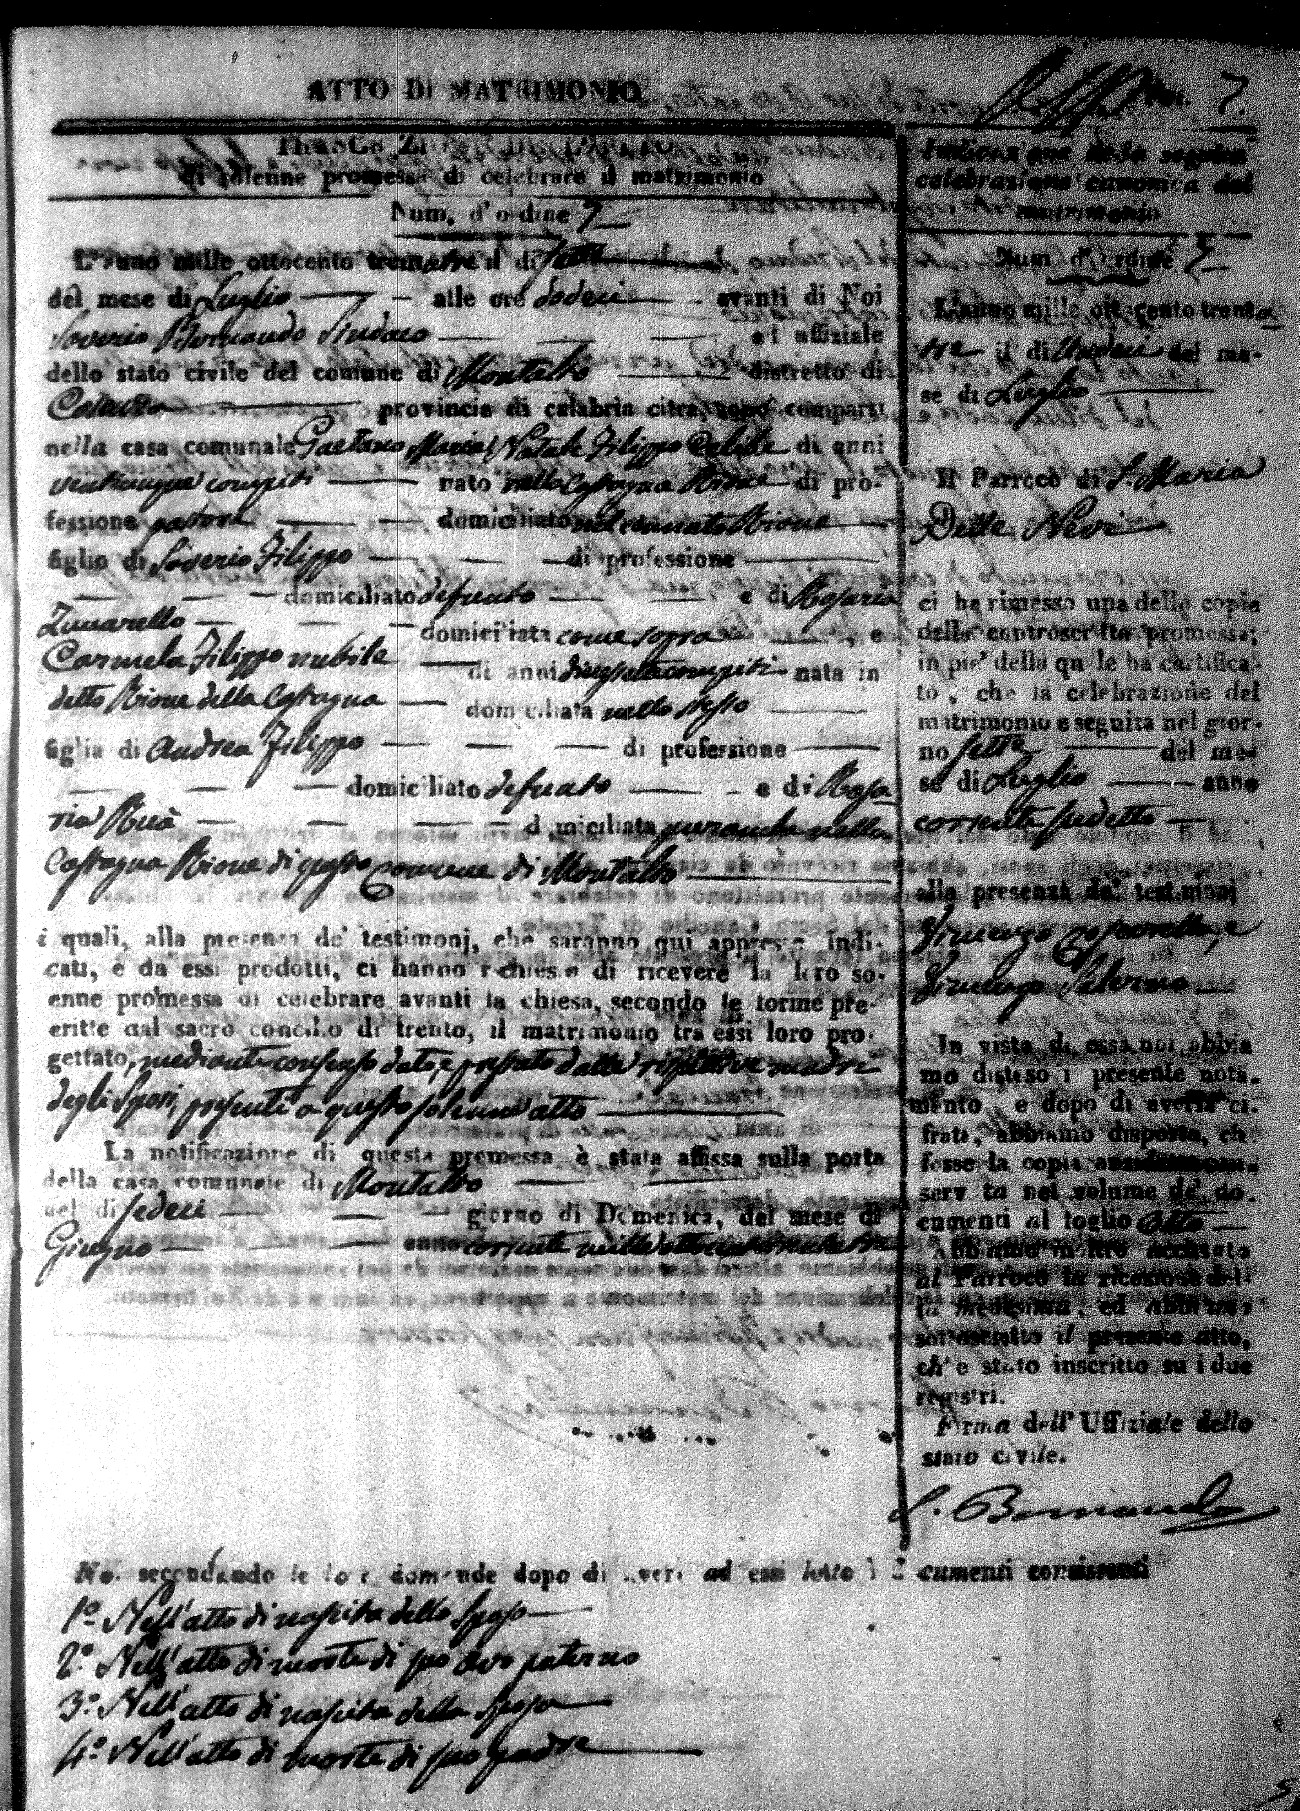 ATTO DI MATRIMONIO
Num. 7.
di solenne promessa di celebrare il matrimonio
Num. d'ordine 7
L'anno mille ottocento trentatre il di sette
del mese di Luglio alle ore dodeci avanti di Noi
Saverio Bernaudo Sindaco ed uffiziale
dello stato civile del comune di Montalto distretto di
Cosenza provincia di calabria citra, sono comparsi
nella casa comunale Gaetano Maria Natale Filippo Celibe di anni
venticinque compiti nato nella Castagna Rione di pro-
fessione domiciliato nel cennato Rione
figlio di Saverio Filippo di professione
domiciliato defunto e di Rosaria
Zuccarello domiciliata come sopra, e
Carmela Filippo nubile di anni compiti nata in
detto Rione della Castagna domiciliata nello stesso
figlia di Andrea Filippo di professione
domiciliato defunto e di Rosa-
ria Ruà domiciliata nella
Castagna Rione di questo Comune di Montalto
i quali, alla presenza de' testimonj, che saranno qui appresso indi-
cati, e da essi prodotti, ci hanno richiesto di ricevere la loro so-
enne promessa di celebrare avanti la chiesa, secondo le forme pre-
critte dal sacro concilio di trento, il matrimonio tra essi loro pro-
gettato, mediante consenso dato, e prestato dalle rispettive madri
degli Sposi, presenti a questo solenne atto
La notificazione di questa promessa è stata affissa sulla porta
della casa comunale di Montalto
nel di sedeci giorno di Domenica, del mese di
Giugno anno corrente mille ottocento trentatre
Indicazione della seguita
celebrazione canonica del
matrimonio
Num. d'Ordine 7
L'anno mille ottocento trenta-
tre il di undeci del me-
se di Luglio
Il Parroco di S. Maria
Delle Nevi
ci ha rimesso una delle copie
della controscritta promessa;
in pie' della quale ha certifica-
to, che la celebrazione del
matrimonio e seguita nel gior-
no sette del me-
se di Luglio anno
corrente sudetto
alla presenza de' testimonj
Vincenzo e
Salerno
In vista di essa noi abbia-
mo disteso il presente nota-
mento, e dopo di averla ci-
frata, abbiamo disposto, ch
fosse la copia
servata nel volume de' do-
cumenti al foglio otto
Abbiamo inoltre accusato
al Parroco la ricezione del-
la medesima, ed abbiamo
sottoscritto il presente atto,
ch'e stato inscritto su i due
registri.
Firma dell'Uffiziale dello
stato civile.
S. Bernaudo
Noi secondando le loro domande dopo di aver ad essi letto i documenti consistenti
1.º Nell'atto di nascita dello Sposo
2.º Nell'atto di morte di suo avo paterno
3.º Nell'atto di nascita della Sposa
4.º Nell'atto di morte di suo padre